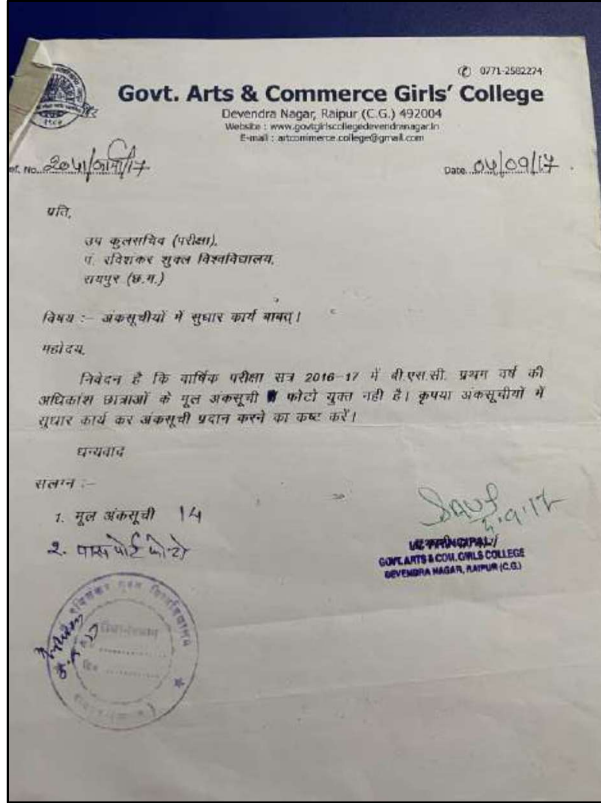 0771-2582274
Govt. Arts & Commerce Girls' College
Devendra Nagar, Raipur (C.G.) 492004
Website : www.govtgirlscollegedevendranagar.in
E-mail : artcommerce.college@gmail.com
Ref. No.
Date. 04/09/17
प्रति,
उप कुलसचिव (परीक्षा),
पं. रविशंकर शुक्ल विश्वविद्यालय,
रायपुर (छ.ग.)
विषय :– अंकसूचीयों में सुधार कार्य बाबत्।
महोदय,
निवेदन है कि वार्षिक परीक्षा सत्र 2016-17 में बी.एस.सी. प्रथम वर्ष की
अधिकांश छात्राओं के मूल अंकसूची फोटो युक्त नही है। कृपया अंकसूचीयों में
सुधार कार्य कर अंकसूची प्रदान करने का कष्ट करें।
धन्यवाद
संलग्न :–
1. मूल अंकसूची 14
2. पासपोर्ट फोटो
5.9.17
PRINCIPAL
GOVT. ARTS & COM. GIRLS COLLEGE
DEVENDRA NAGAR, RAIPUR (C.G.)